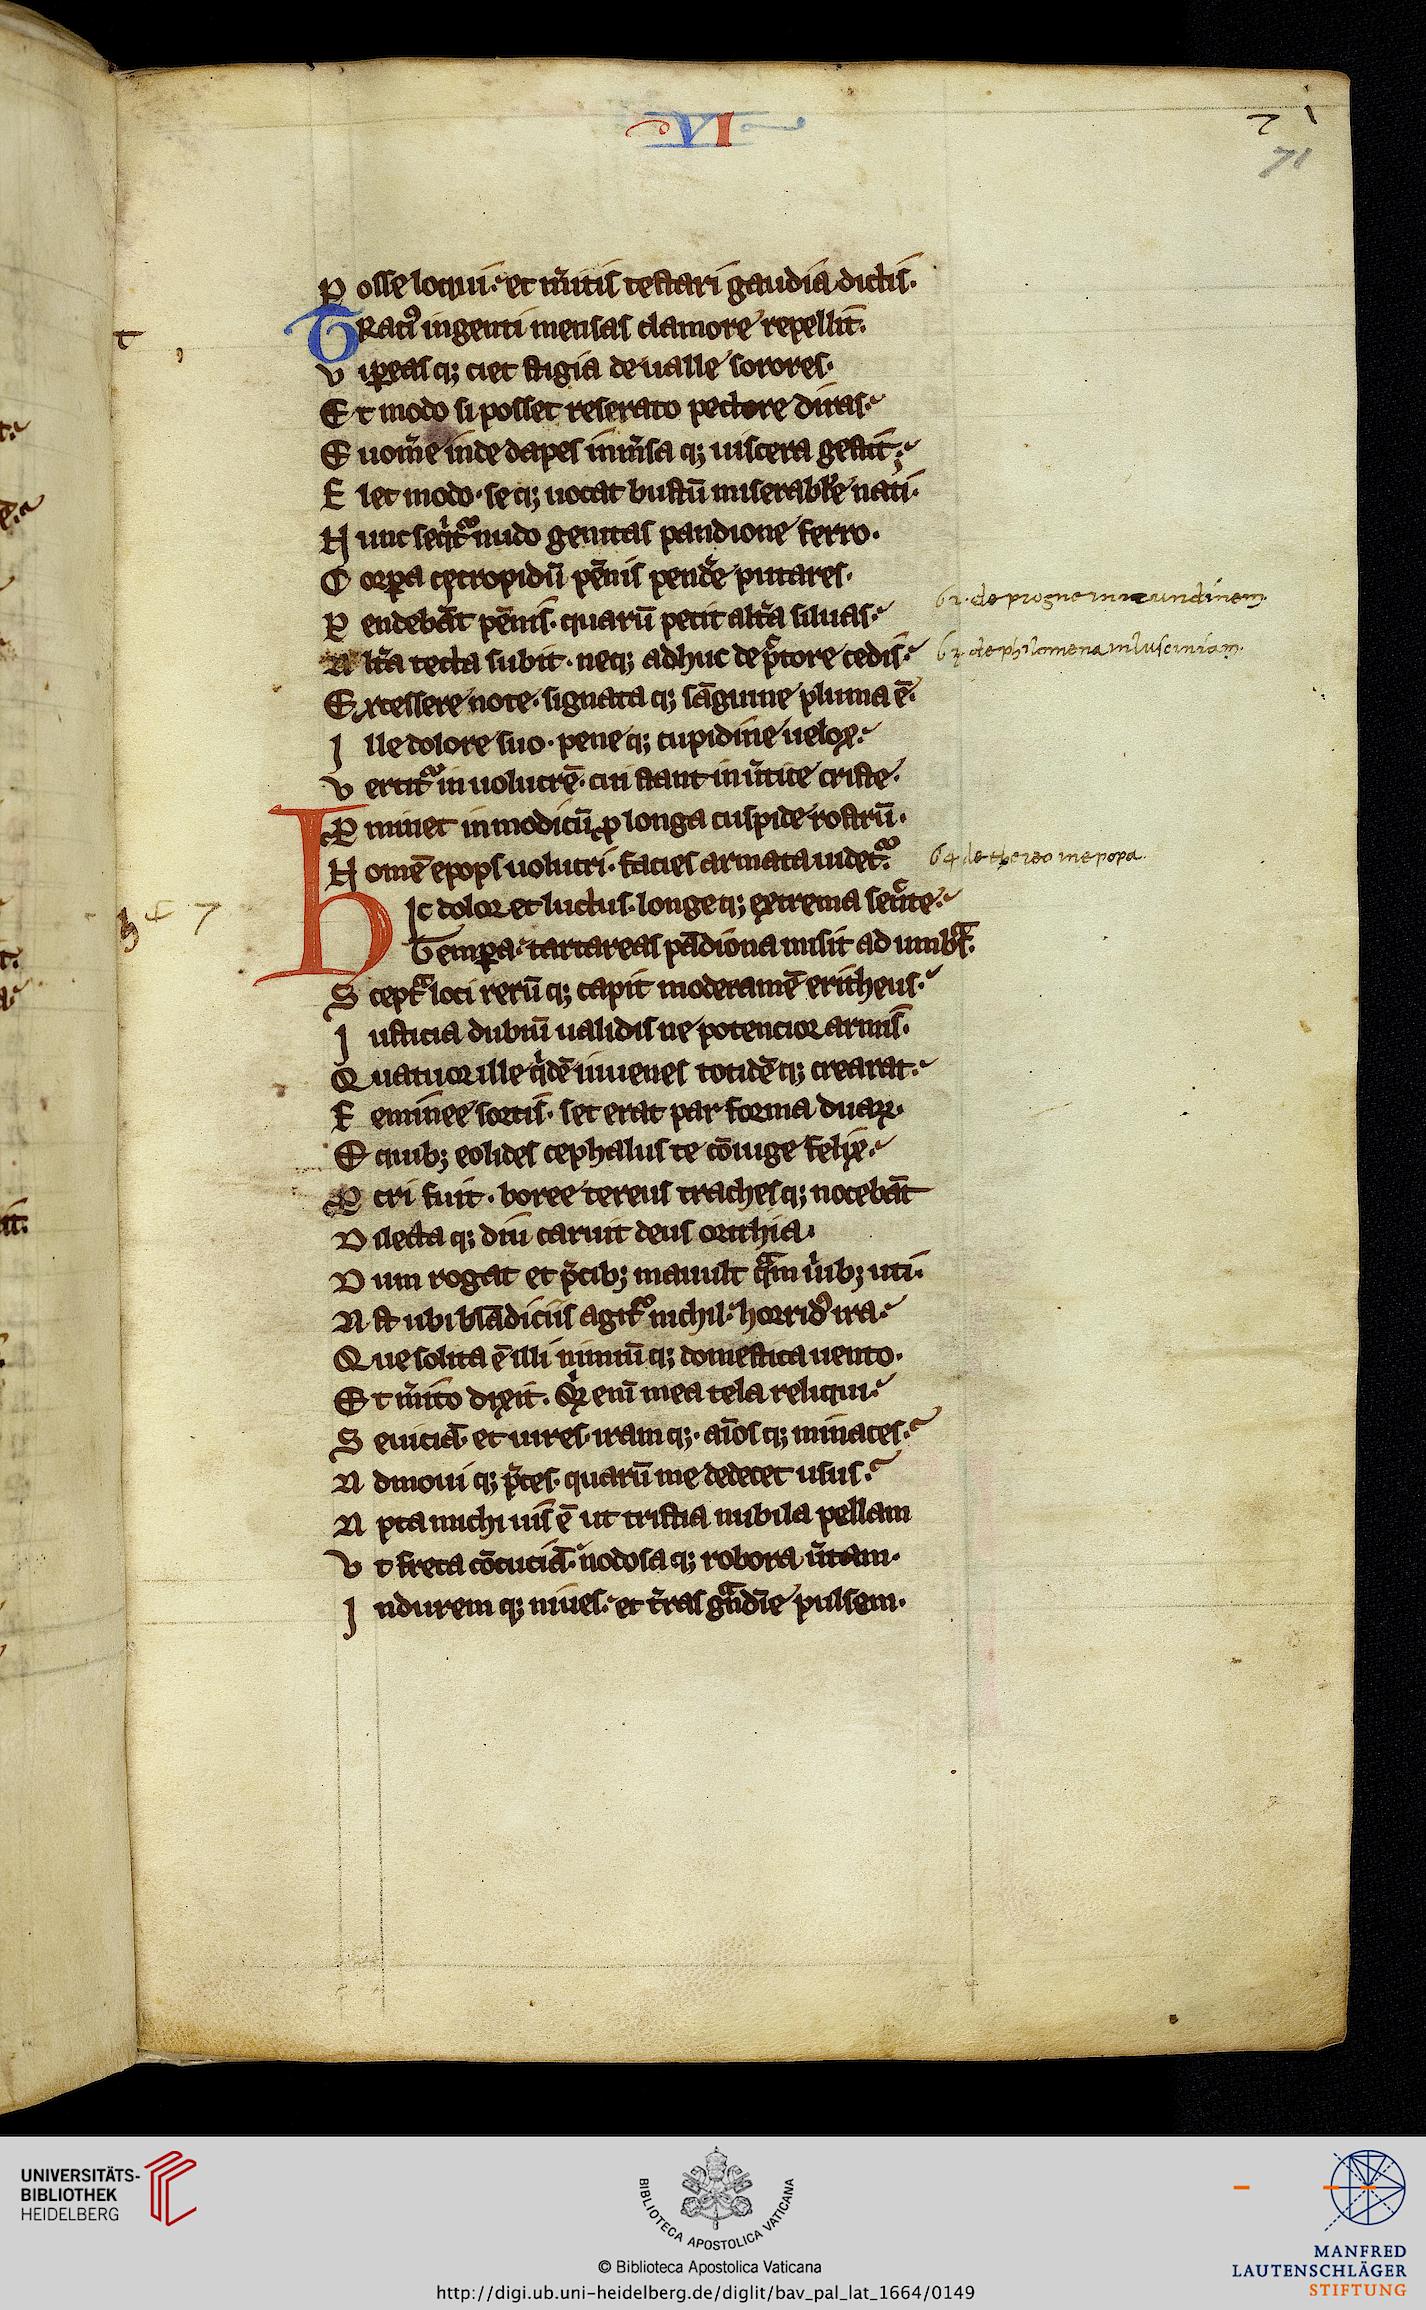 VI
71
Posse loqui· et m̃itis testari gaudia dictis·
Traciꝰ ingenti mensas clamore repellit·
Vipeas qꝫ ciet stigia de ualle sorores·
Et modo si posset reserato pectore diras·
Euom̃e inde dapes inm̃sa qꝫ uiscera gestit·
Flet modo· se qꝫ uocat bustū miserabile nati·
Nunc seqͥt᷑ nudo genitas pandione ferro·
Corpa cecropidū pēnis pende᷑ putares·
Pendebāt pēnis· quarū petit alt̃a siluas·
Alt̃a tecta subit· neqꝫ adhuc de p̃ctore cedis·
Excessere note· signata qꝫ sāguine pluma ē·
Ille dolore suo· pene qꝫ cupidine uelox·
Vertit᷑ in uolucrē· cui stant in ũtice criste·
Prminet inmodicū ꝓ longa cuspide rostrū·
Nomē epops uolucri· facies armata uidet᷑·
Hic dolor et luctus· longe qꝫ extrema senc̃te·
Tempa· tartareas pādiona misit ad umbᷓs·
Sceptᷓ loci rerū qꝫ capit moderamē eritheus·
Iusticia dubiū ualidis ne potencior armis·
Quatuor ille qͥdē iuuenes totidē qꝫ crearat·
Feminee sortis· set erat par forma duaꝝ·
E quibꝫ eolides cephalus te cōiuge felix·
Pcri fuit· boree tereus traches qꝫ nocebāt
Dilecta qꝫ diu caruit deus orithia·
Dum rogat et p̃cibꝫ mauult qᷓm uiribꝫ uti·
Ast ubi blādiciis agit᷑ nichil· horridꝰ ira·
Que solita ē illi nimiū qꝫ domestica uento·
Et m̃ito dixit· Qͥd eni mea tela reliqui·
Seuiciā· et uires· iram qꝫ· aīos qꝫ minaces·
Admoui qꝫ p̃ces· quarū me dedecet usus·
Apta michi uis ē ut tristia nubila pellam
Vt freta cōcuciā· nodosa qꝫ robora ũtam·
Indurem qꝫ niues· et t̃ras gᷓndīe pulsem·
62· de progne in irundinem
63· de philomena in lusciniam·
64 de thereo in epopa·
t
h
UNIVERSITÄTS-
BIBLIOTHEK
HEIDELBERG
BIBLIOTECA APOSTOLICA VATICANA
© Biblioteca Apostolica Vaticana
http://digi.ub.uni-heidelberg.de/diglit/bav_pal_lat_1664/0149
MANFRED
LAUTENSCHLÄGER
STIFTUNG